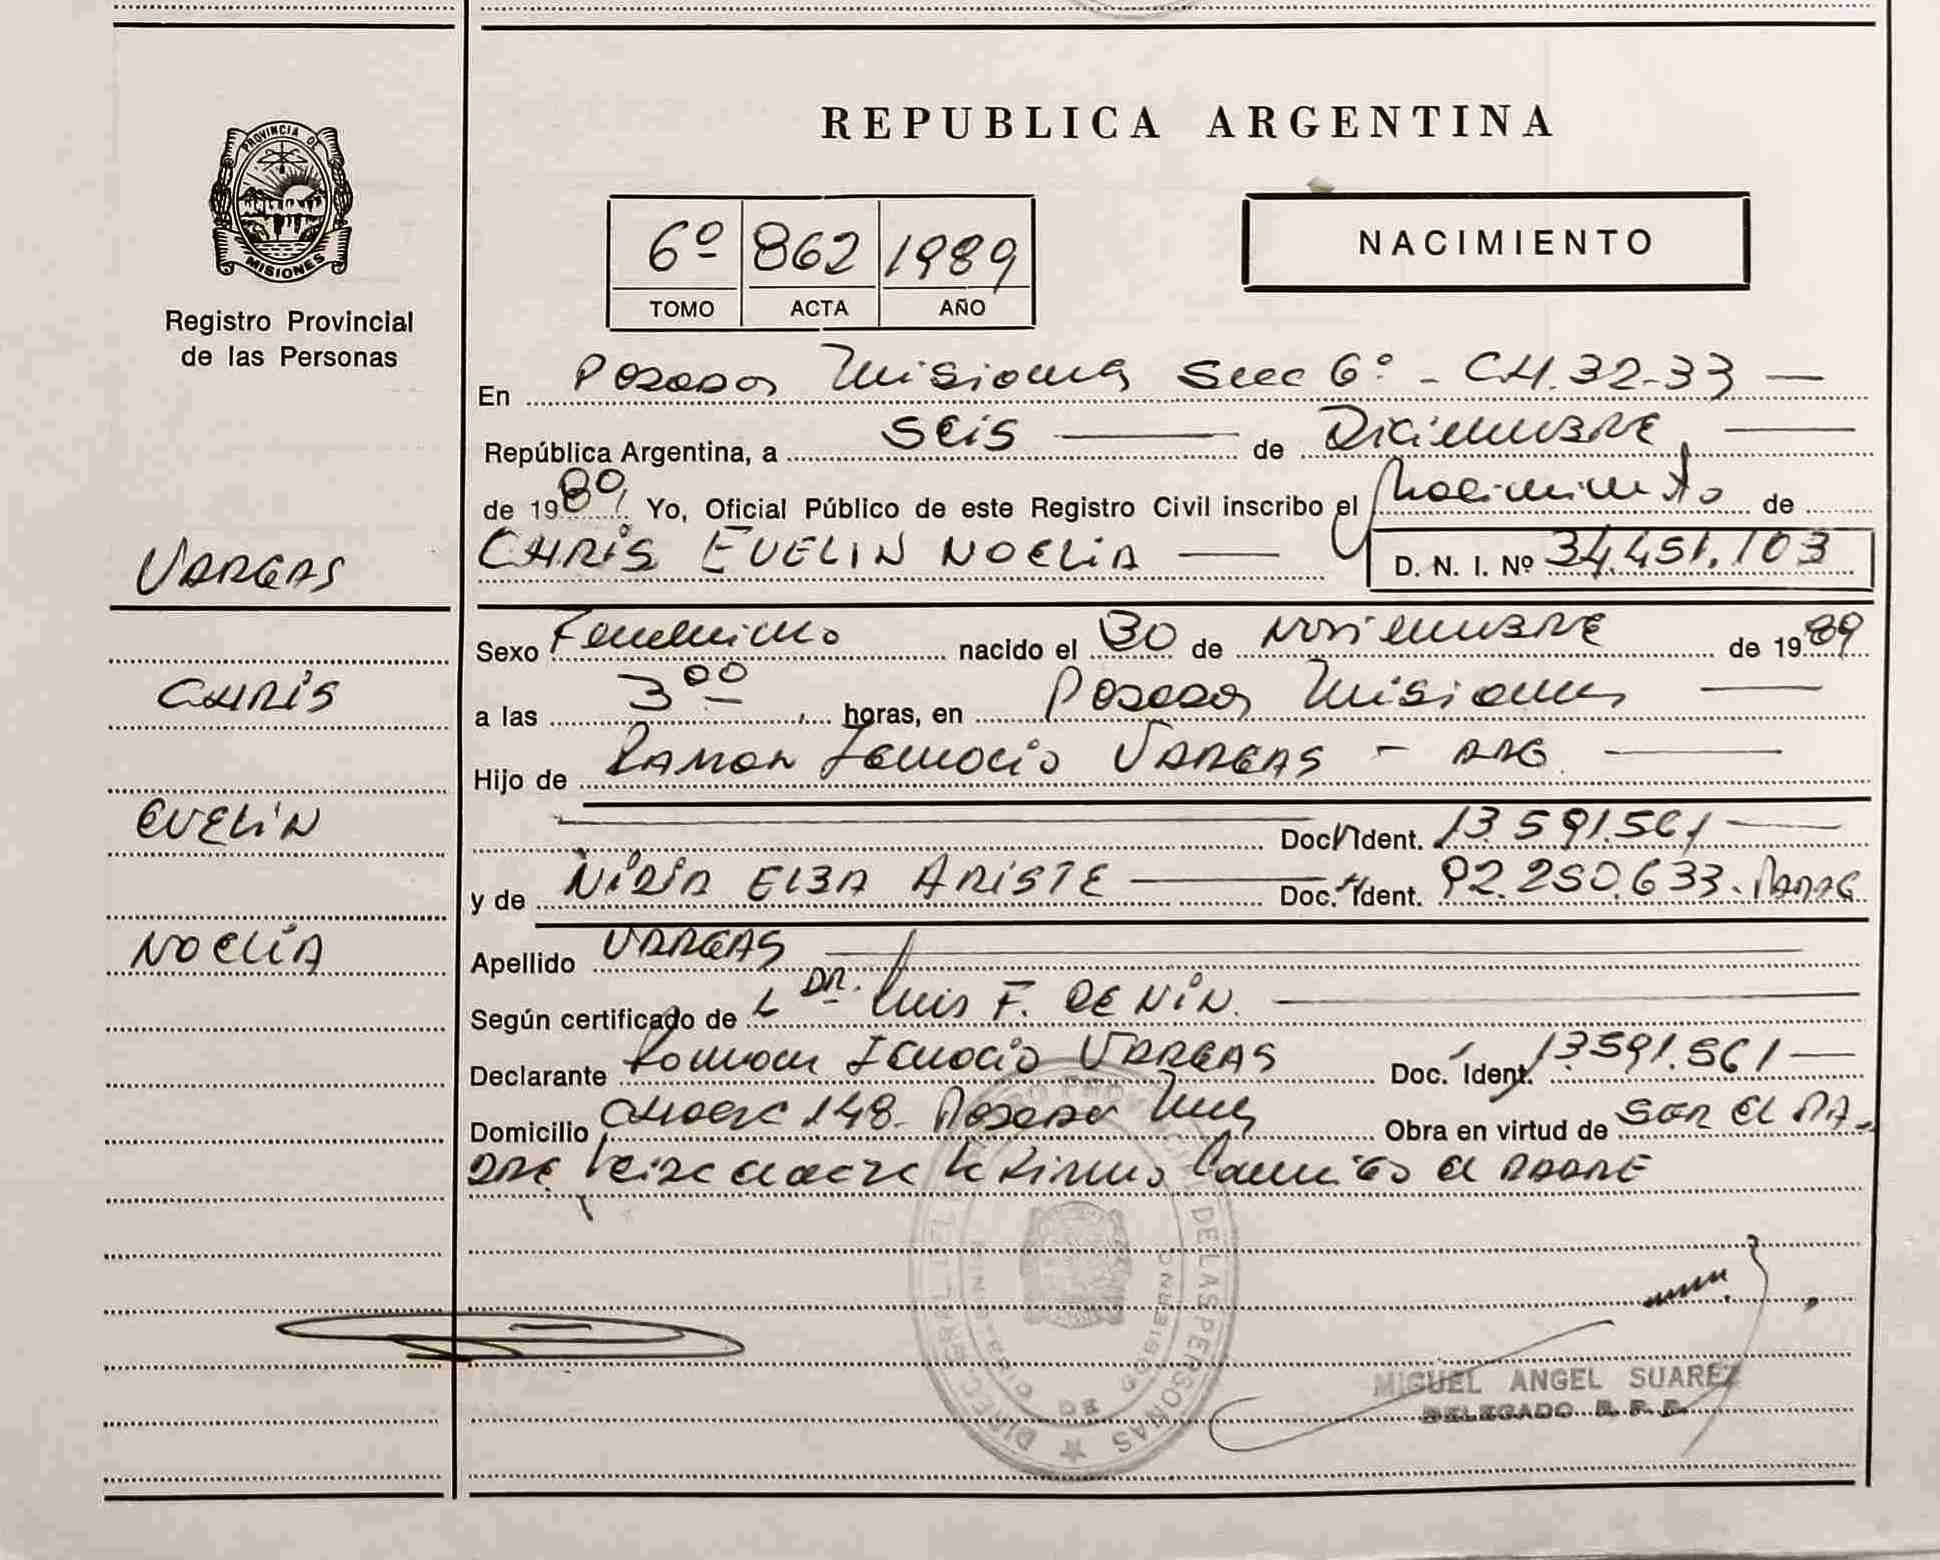 REPUBLICA ARGENTINA
PROVINCIA DE
MISIONES
Registro Provincial
de las Personas
6º 862 1989
TOMO ACTA AÑO
NACIMIENTO
En Posadas Misiones Secc 6º - CH. 32-33
República Argentina, a seis de Diciembre
de 1989 Yo, Oficial Público de este Registro Civil inscribo el Nacimiento de
CHRIS EVELIN NOELIA D. N. I. Nº 34.451.103
VARGAS
CHRIS
EVELIN
NOELIA
Sexo Femenino nacido el 30 de Noviembre de 1989
a las 3 00 horas, en Posadas Misiones
Hijo de Ramon Ignacio VARGAS - ARG.
Doc. Ident. 13.591.561
y de NIDIA ELBA ARISTE Doc. Ident. 92.250.633.
Apellido VARGAS
Según certificado de DR. Luis F. DENIN.
Declarante Ramon Ignacio VARGAS Doc. Ident. 13.591.561
Domicilio 148. Posadas Mnes Obra en virtud de SER EL PA-
DRE el PADRE
DIREC. GRAL. DEL REGISTRO PROVINCIAL DE LAS PERSONAS
MIGUEL ANGEL SUAREZ
DELEGADO R. P. P.